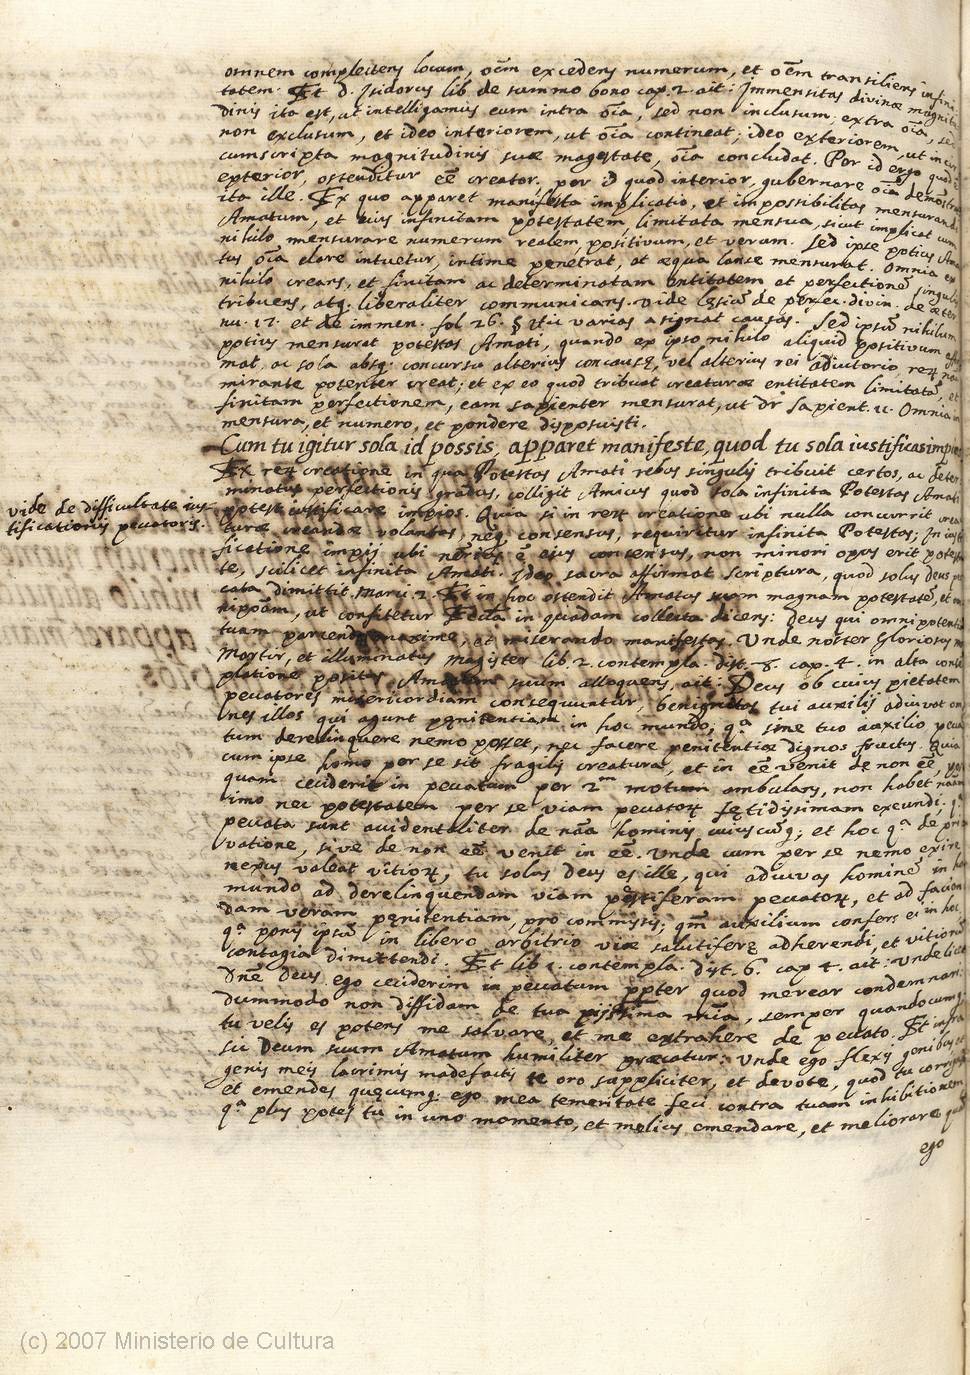 omnem complectens locum, oēm excedens numerum, et oēm transiliens infini
tatem. Et D. Isidorus lib. de summo bono cap. 2. ait: Immensitas divinæ magnitu
dinis ita est, ut intelligamus eum intra oīa, sed non inclusum; extra oīa, sed
non exclusum, et ideo interiorem, ut oīa contineat; ideo exteriorem, ut incir
cumscripta magnitudinis suæ magestate, oīa concludat. Per id ergo quod
exterior, ostenditur eē creator, per id quod interior, gubernare oīa demōstra
ita ille. Ex quo apparet manifesta implicatio, et impossibilitas mensurandi
Amatum, et eius infinitam potestatem, limitata mensura, sicut implicat cum
nihilo mensurare numerum realem, positivum, et verum. Sed ipse potius Ama
tus oīa clare intuetur, intime penetrat, at æqua lance mensurat. Omnia ex
nihilo creans, et finitam ac determinatam entitatem et perfectionē singulis
tribuens, atq; liberaliter communicans. vide de perfec. divin. de æter
nu. 17. et de immen. fol 26. § varias assignat causas. Sed ipsū nihilum
potius mensurat potestas Amati, quando ex ipso nihilo aliquid positivum
mat, ac sola absq; concursu alterius concausæ, vel alterius rei adiutorio
mirante potenter creat; et ex eo quod tribuat creaturæ entitatem limitatā, et
finitam perfectionem, eam sapienter mensurat, ut dr̄ Sapient. 11. Omnia in
mensura, et numero, et pondere disposuisti.
Cum tu igitur sola id possis, apparet manifeste, quod tu sola iustificas impios
Ex rerū creatione in qua Potestas Amati rebus singulis tribuit certos, ac deter
minatos perfectionis gradus, colligit Amicus quod sola infinita Potestas Amati
vide de difficultate ius
tificationis peccatoris.
potest iustificare impios. Quia si in rerū creatione ubi nulla concurrit crea
turæ creandæ voluntas, neq; consensus, requiritur infinita Potestas; In iusti
ficatione impij ubi ē ejus consensus, non minori opus erit potesta
te, scilicet infinita Amati. Ideo sacra affirmat scriptura, quod solus Deus pec
cata dimittit. Marci 2. Et in hoc ostendit Amatus suam magnam potestatē, et om
nippotēm, ut confitetur Ecclā in quadam collecta dicens: Deus qui omnipotentiā
tuam parcendo maxime, et miserando manifestas. Unde noster Gloriosus
Martir, et illuminatus Magister lib. 2. contempla. dist. 8. cap. 4. in alta conte
platione positus Amatum suum alloquens, ait: Deus ob cuius pietatem
peccatores misericordiam consequuntur, benignitas tui auxilij adiuvat om
nes illos qui agunt pænitentiam in hoc mundo; qª sine tuo auxilio pecca
tum derelinquere nemo posset, nec facere penitentiæ dignos fructus. Quia
cum ipse homo per se sit fragilis creatura, et in eē venit de non eē,
quam ceciderit in peccatum per 2m motum ambulans, non habet
imo nec potestatem per se viam peccatorū fętidissimam exeundi.
peccata sunt accidentaliter de nāa hominis cuiuscūq; et hoc qª de pri
vatione, sive de non eē venit in eē. Unde cum per se nemo exire
nexus valeat vitiorū, tu solus Deus es ille, qui adiuvas hominē in hoc
mundo ad derelinquendam viam pestiferam peccatorū, et ad facien
dam veram pænitentiam, pro commissis; auxilium confers ei in hoc
qª ponis ipsū in libero arbitrio viæ salutiferę adherendi, et vitiorū
contagia dimittendi. Et lib 1. contempla. dist. 6. cap 4. ait: Unde licet
Dn̄e Deus ego ceciderim in peccatum ppter quod merear condemnari
dummodo non diffidam de tua pijssima mīa, semper quandocumq;
tu velis es potens me salvare, et me extrahere de peccato. Et infra
sic Deum suum Amatum humiliter præcatur: Unde ego flexis genibus et
genis meis lacrimis madefactis te oro suppliciter, et devote, quod tu corrigas
et emendes quæcumq; ego mea temeritate feci contra tuam inhibitionem
qª plus potes tu in uno momento, et melius emendare, et meliorare quā
ego
(c) 2007 Ministerio de Cultura